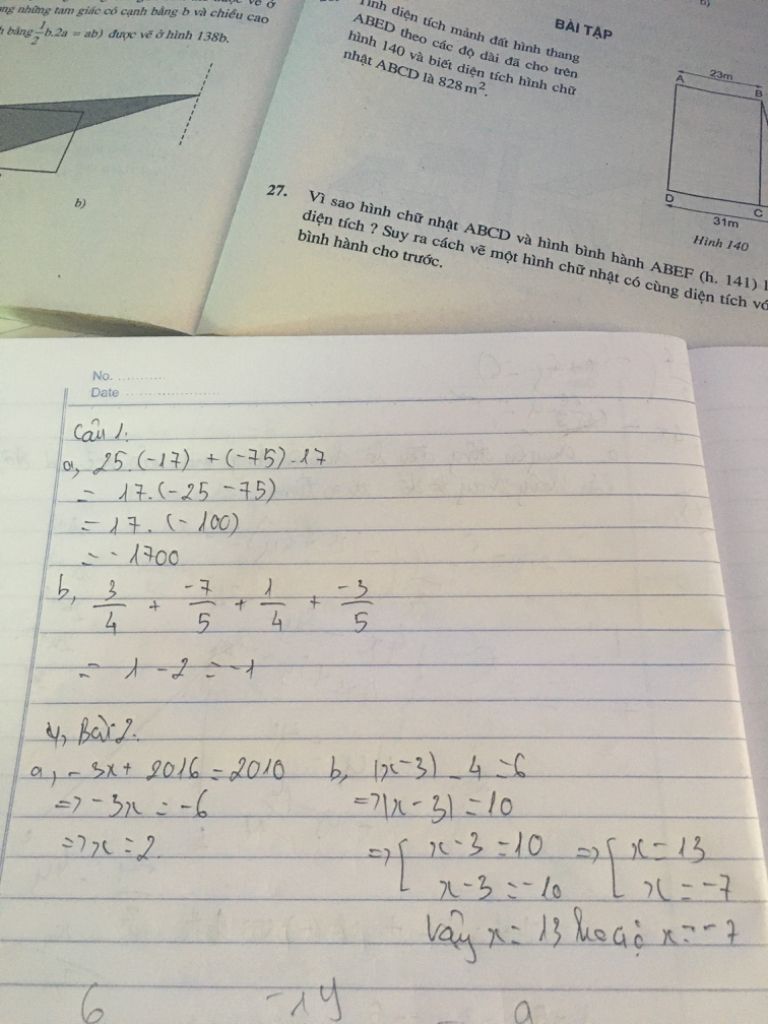 ng những tam giác có cạnh bằng b và chiều cao
bằng 1/2 b.2a = ab) được vẽ ở hình 138b.
b)
b)
BÀI TẬP
Tính diện tích mảnh đất hình thang
ABED theo các độ dài đã cho trên
hình 140 và biết diện tích hình chữ
nhật ABCD là 828 m².
23m
A
B
D
C
31m
Hình 140
27. Vì sao hình chữ nhật ABCD và hình bình hành ABEF (h. 141)
diện tích ? Suy ra cách vẽ một hình chữ nhật có cùng diện tích
bình hành cho trước.
No. ...........
Date ......................
Câu 1:
a, 25.(-17) + (-75).17
= 17.(-25 -75)
= 17.(-100)
= -1700
b, 3/4 + -7/5 + 1/4 + -3/5
= 1 - 2 = -1
Bài 2.
a, -3x + 2016 = 2010
=> -3x = -6
=> x = 2
b, |x-3| - 4 = 6
=> |x-3| = 10
=> [ x-3 = 10 => [ x = 13
x-3 = -10 x = -7
Vậy x = 13 hoặc x = -7
6 -14 9